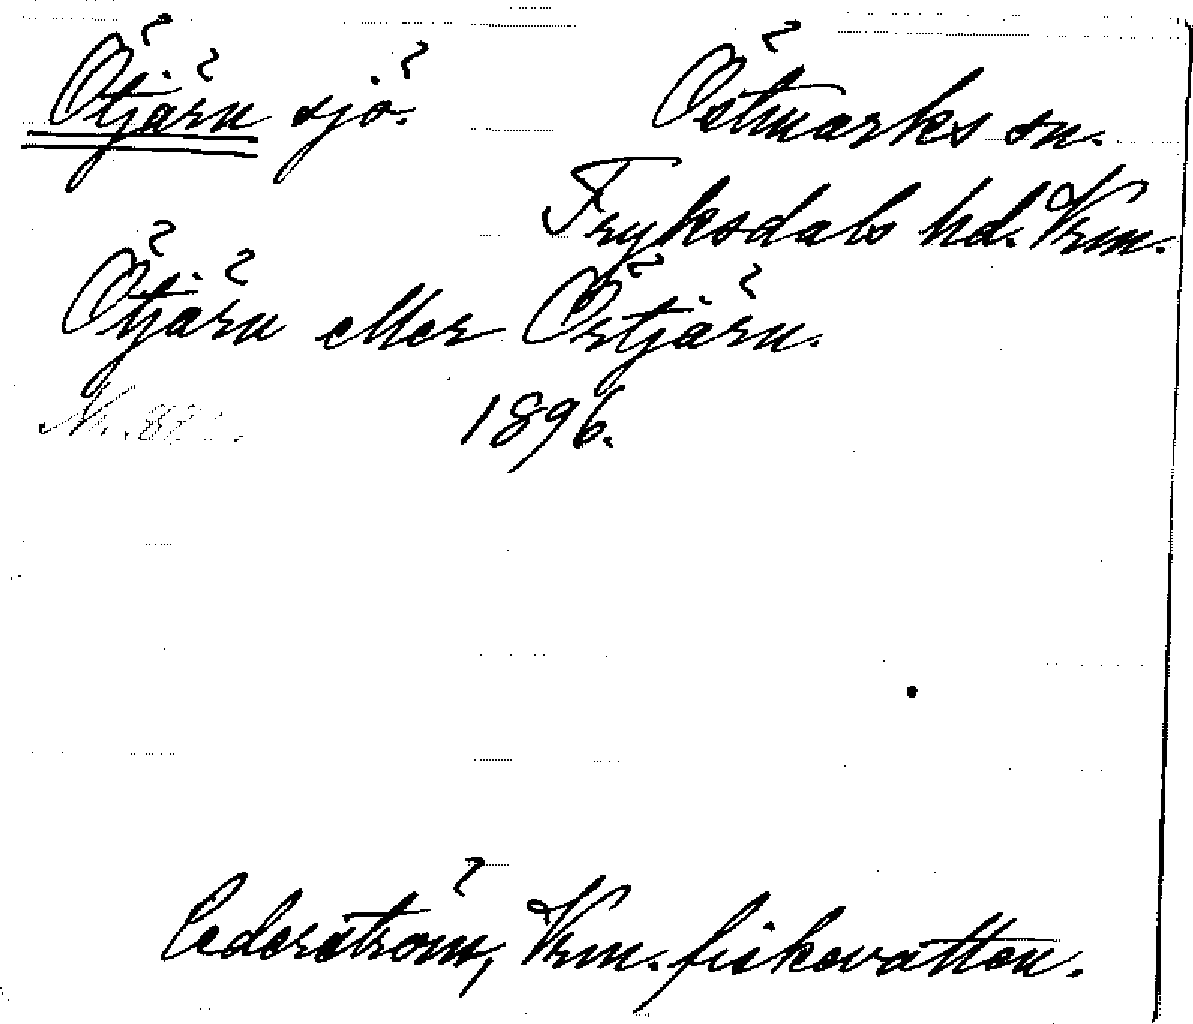 Ötjärn sjö.
Östmarks sn.
Fryksdals hd. Vrm.
Ötjärn eller Örtjärn.
1896.
Cederström, Vrm. fiskevatten.